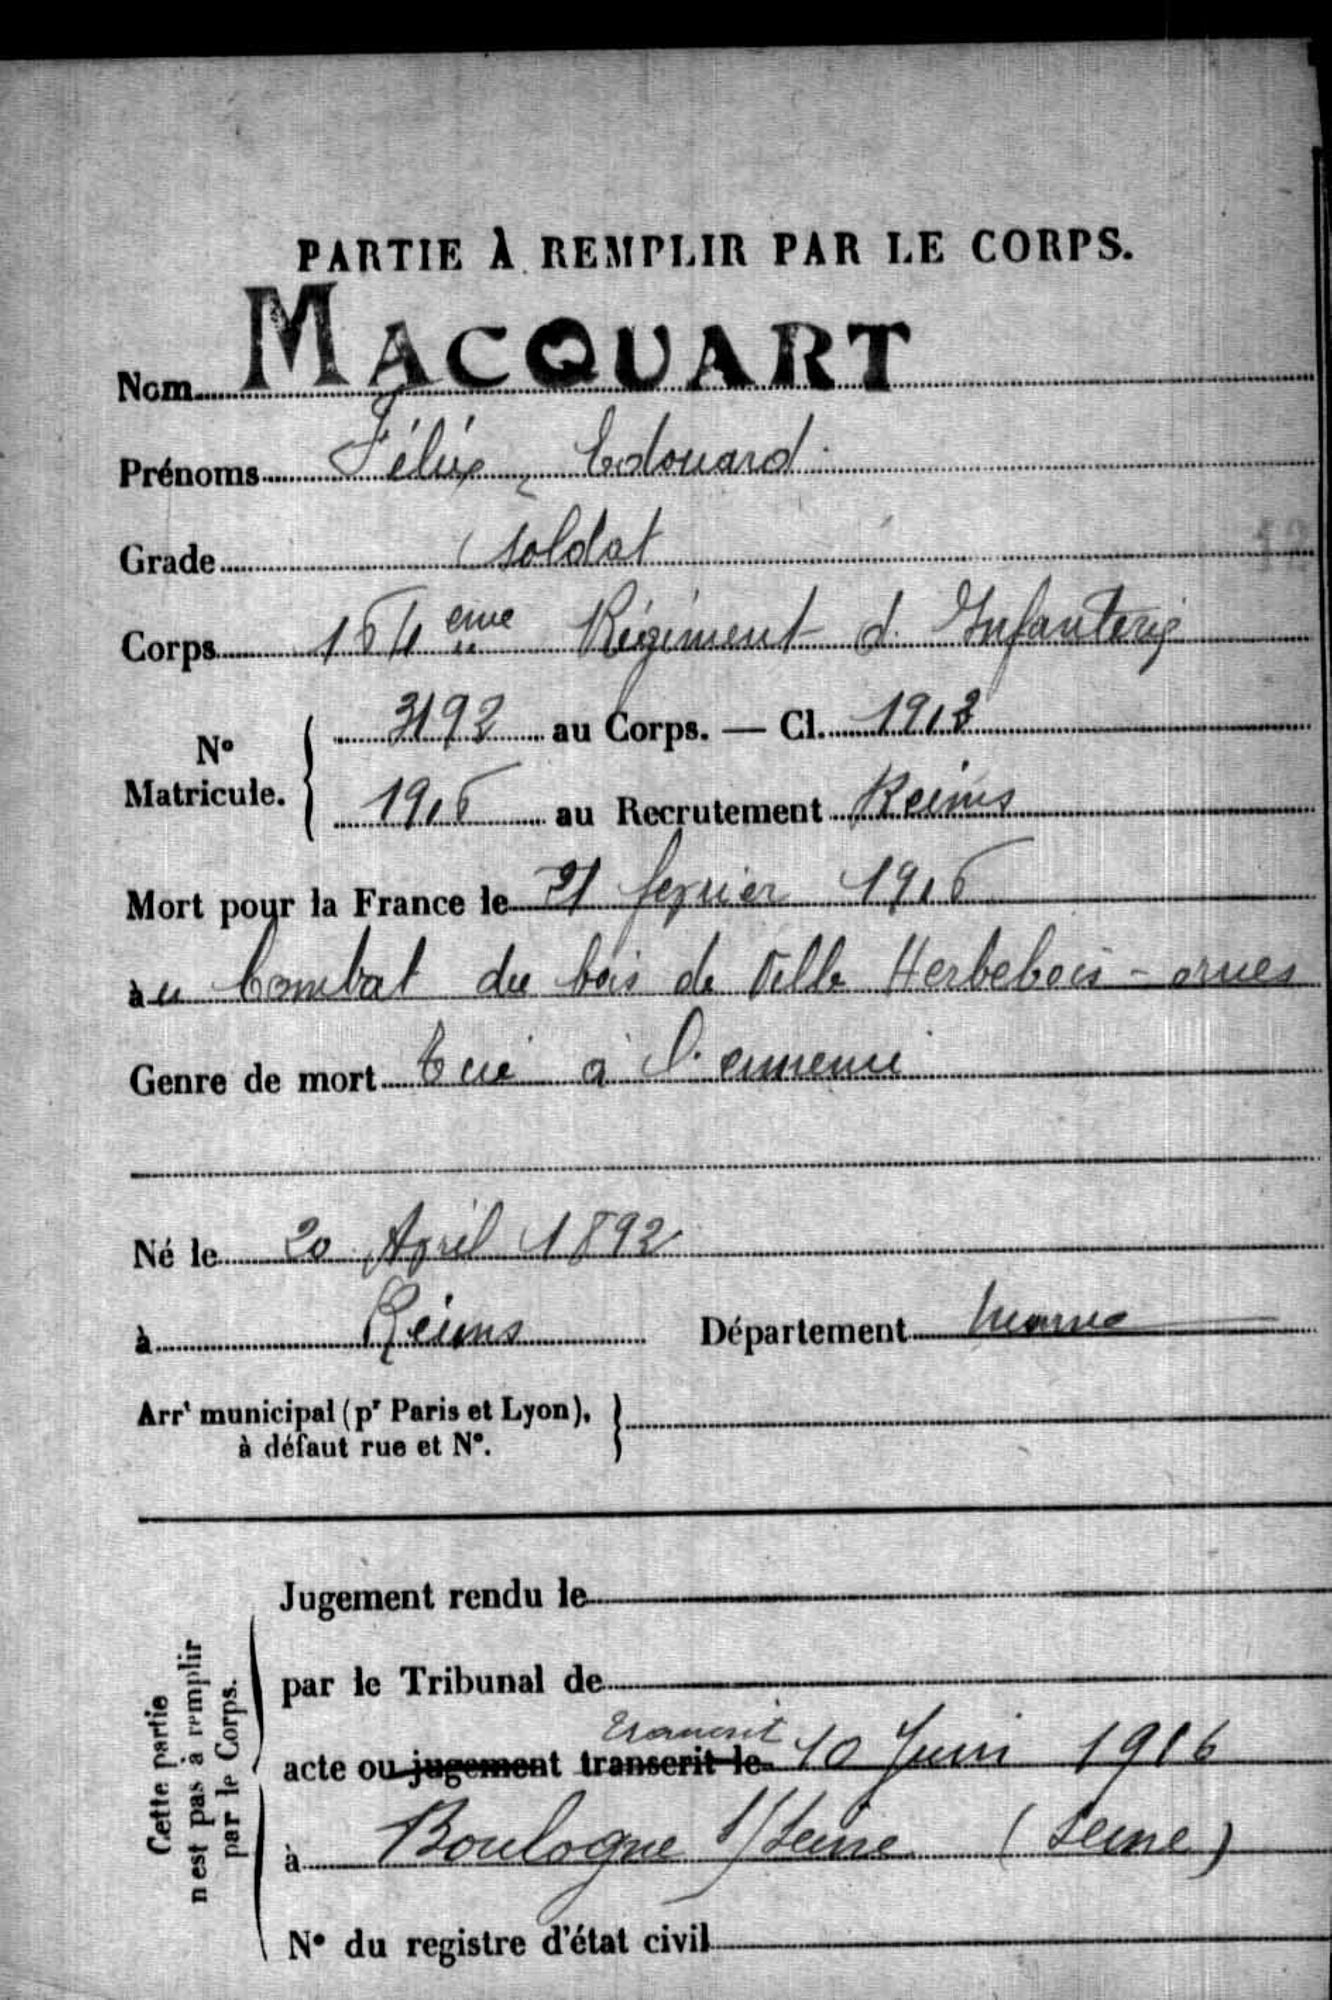 PARTIE À REMPLIR PAR LE CORPS.
Nom MACQUART
Prénoms Félix, Edouard
Grade Soldat
Corps 164 eme Régiment d. Infanterie
N° Matricule. { 3192 au Corps. — Cl. 1912
1916 au Recrutement Reims
Mort pour la France le 21 fevrier 1916
au Combat du bois de Ville Herbebois - ornes
Genre de mort Tué à l'ennemi
Né le 20 Avril 1892
à Reims Département Marne
Arrt municipal (pr Paris et Lyon), }
à défaut rue et N°.
Jugement rendu le
par le Tribunal de
transcrit
acte ou jugement transcrit le 10 Juin 1916
à Boulogne s/Seine (Seine)
N° du registre d'état civil
Cette partie
n'est pas à remplir
par le Corps.